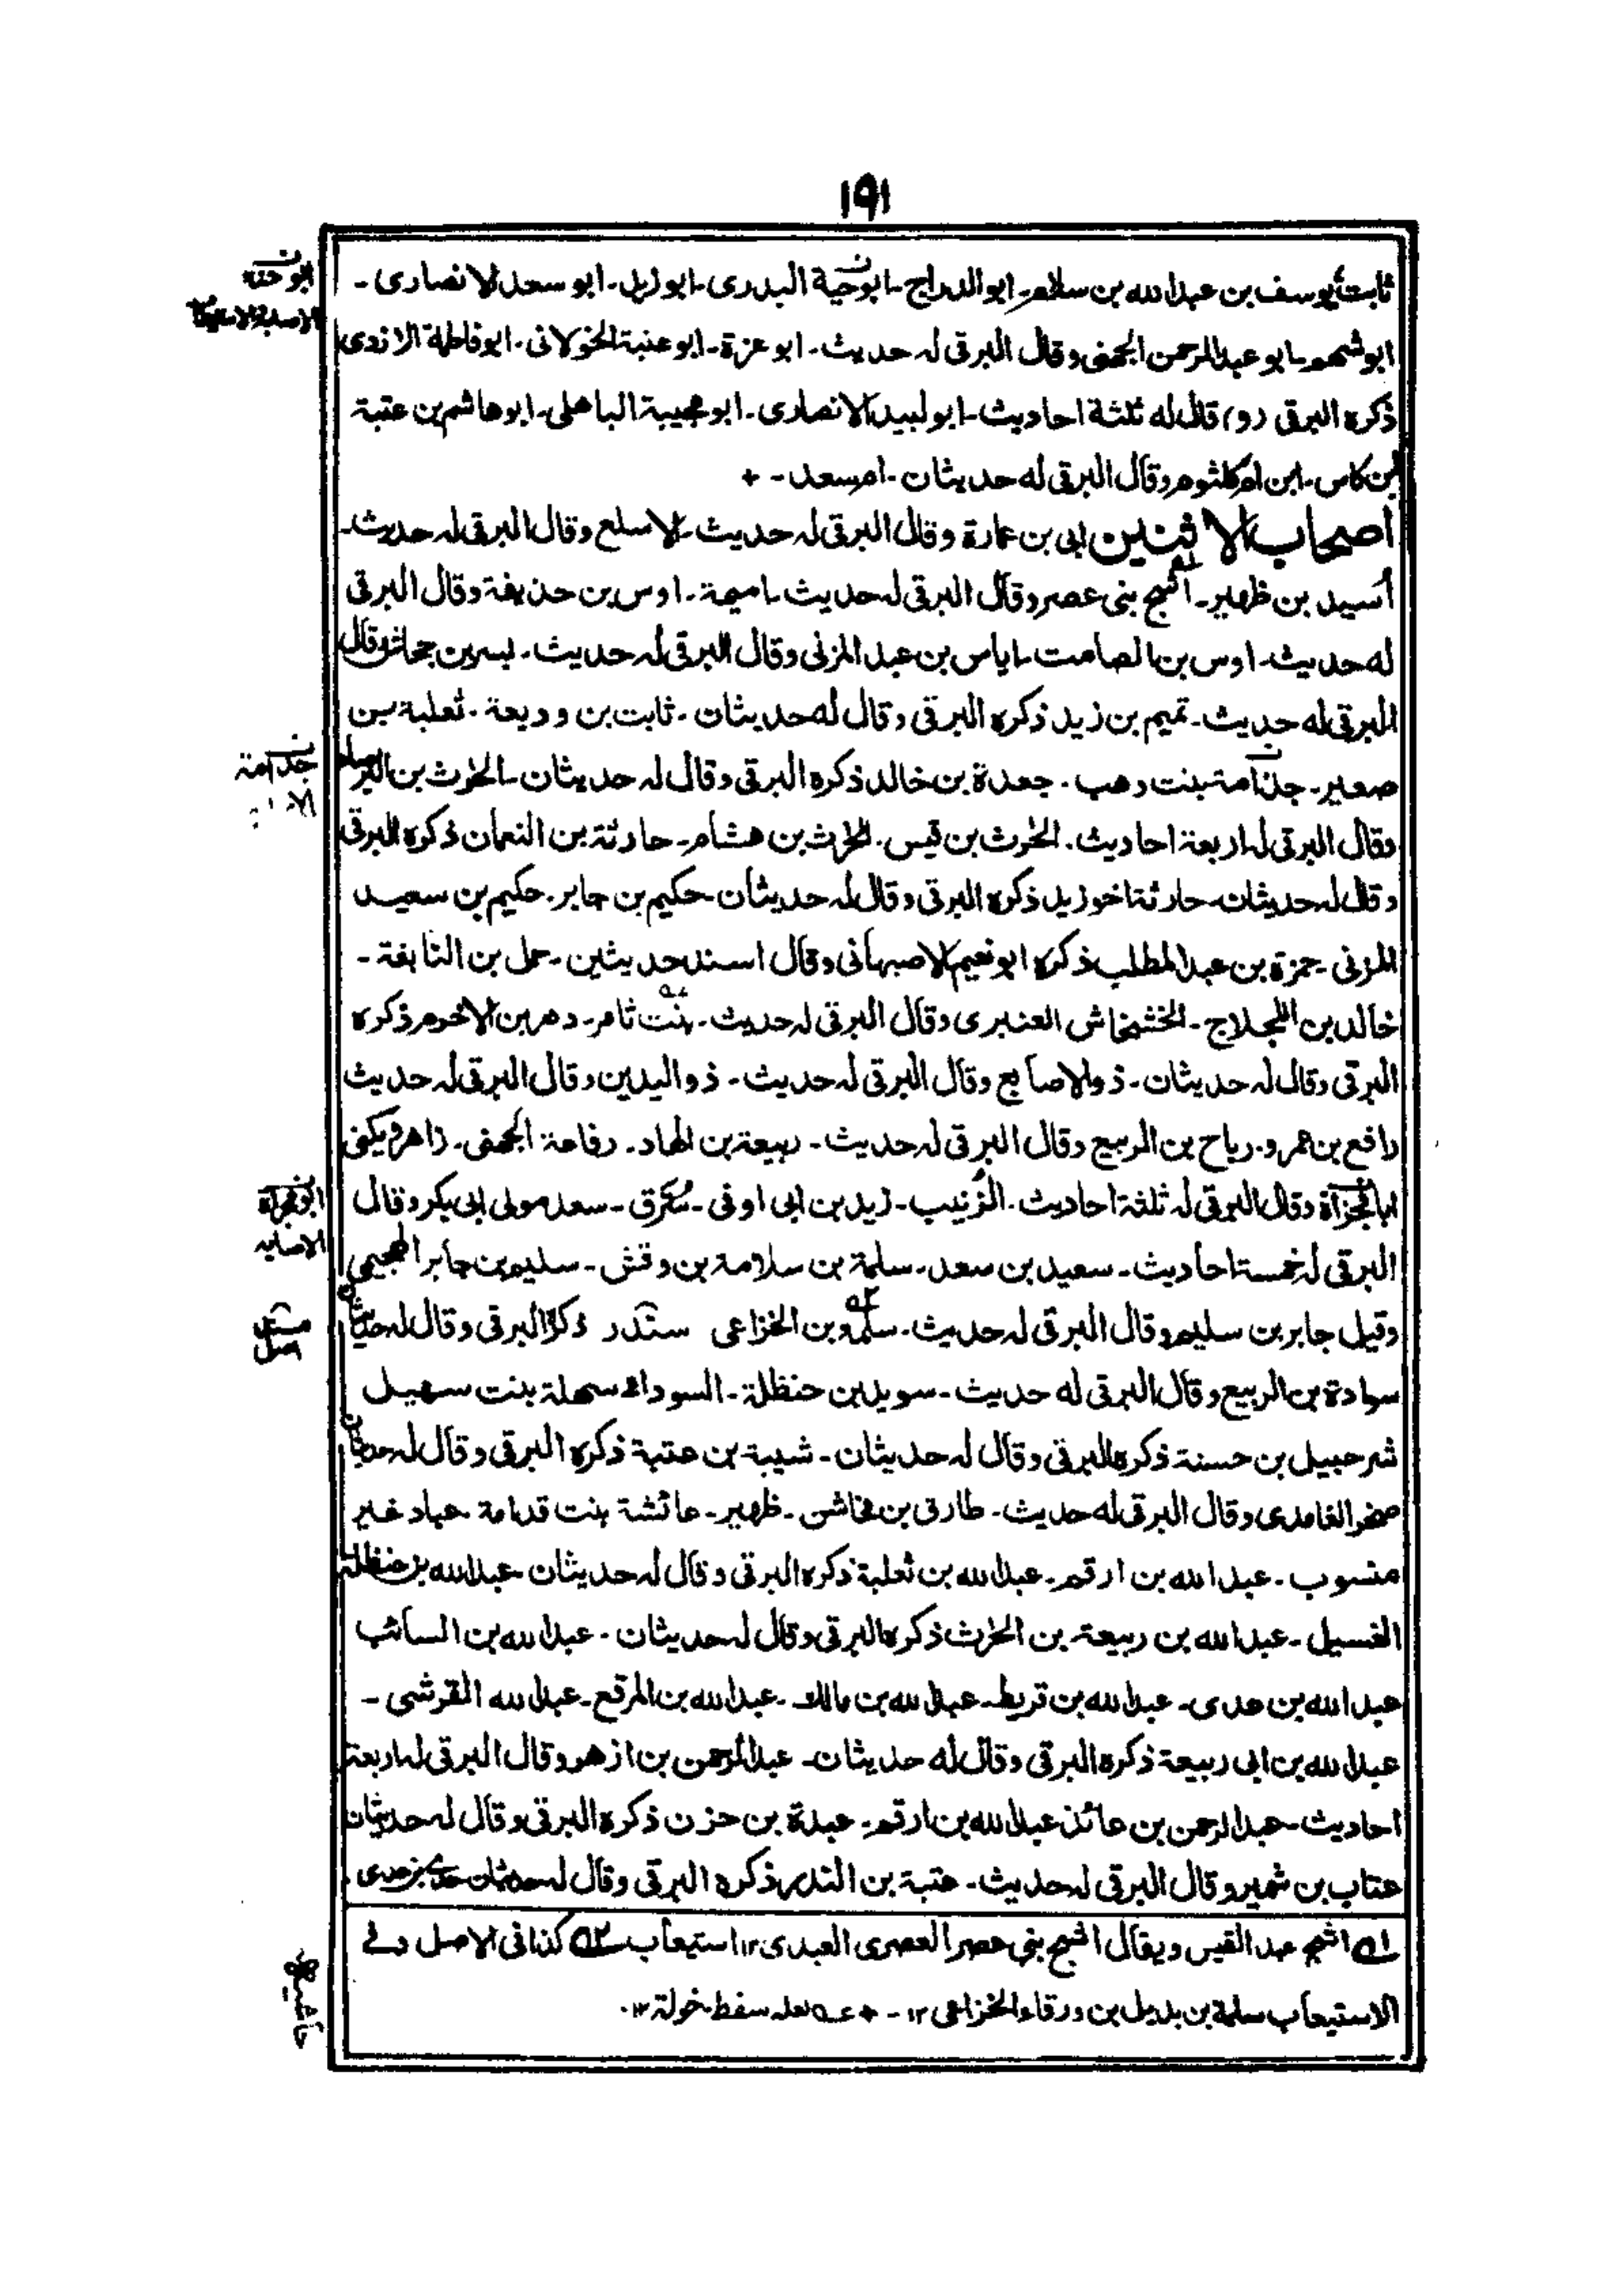 ١٩١
ثابت يوسف بن عبد الله بن سلام۔ ابو الدراج۔ ابوحية البدرى۔ ابوزيد۔ ابو سعد الانصارى۔
ابو شهم۔ ابو عبد الرحمن الجهنى وقال البرقى له حديث۔ ابو عزة۔ ابو عنبة الخولانى۔ ابو فاطمة الازدى
ذكره البرقى (و) قال له ثلثة احاديث۔ ابو لبيد الانصارى۔ ابو مجيبة الباهلى۔ ابو هاشم بن عتبة
ابن كاس۔ ابن ام كلثوم وقال البرقى له حديثان۔ ام سعد۔ +
اصحاب الاثنين ابى بن عمارة وقال البرقى له حديث۔ الاسلع وقال البرقى له حديث۔
أسيد بن ظهير۔ اشج بنى عصر وقال البرقى له حديث۔ اميمة۔ اوس بن حذيفة وقال البرقى
له حديث۔ اوس بن الصامت۔ اياس بن عبد المزنى وقال البرقى له حديث۔ بسر بن جحاش وقال
البرقى له حديث۔ تميم بن زيد ذكره البرقى وقال له حديثان۔ ثابت بن وديعة۔ ثعلبة بن
صعير۔ جذامة بنت وهب۔ جعدة بن خالد ذكره البرقى وقال له حديثان۔ الحٰرث بن البرصاء
وقال البرقى له اربعة احاديث۔ الحٰرث بن قيس۔ الحٰرث بن هشام۔ حارثة بن النعمان ذكره البرقى
وقال له حديثان۔ حارثة اخو زيد ذكره البرقى وقال له حديثان۔ حكيم بن جابر۔ حكيم بن سعيد
المزنى۔ حمزة بن عبد المطلب ذكره ابو نعيم الاصبهانى وقال اسند حديثين۔ حمل بن النابغة۔
خالد بن اللجلاج۔ الخشخاش العنبرى وقال البرقى له حديث۔ بنت ثامر۔ دهر بن الاخرم ذكره
البرقى وقال له حديثان۔ ذو الاصابع وقال البرقى له حديث۔ ذو اليدين وقال البرقى له حديث
رافع بن عمرو۔ رباح بن الربيع وقال البرقى له حديث۔ ربيعة بن الهاد۔ رفاعة الجهنى۔ زاهر ويكنى
ابا مجزأة وقال البرقى له ثلثة احاديث۔ الزُنيب۔ زيد بن ابى اوفى۔ سُرَّق۔ سعد مولى ابى بكر وقال
البرقى له خمسة احاديث۔ سعيد بن سعد۔ سلمة بن سلامة بن وقش۔ سليم بن جابر الهجيمى
وقيل جابر بن سليم وقال البرقى له حديث۔ سلمة بن الخزاعى سندر ذكره البرقى وقال له حديثان
سوادة بن الربيع وقال البرقى له حديث۔ سويد بن حنظلة۔ السوداء سهلة بنت سهيل
شرحبيل بن حسنة ذكره البرقى وقال له حديثان۔ شيبة بن عتبة ذكره البرقى وقال له حديثان
صخر الغامدى وقال البرقى له حديث۔ طارق بن مخاشن۔ ظهير۔ عائشة بنت قدامة۔ عباد غير
منسوب۔ عبد الله بن ارقم۔ عبد الله بن ثعلبة ذكره البرقى وقال له حديثان۔ عبد الله بن حنظلة
الغسيل۔ عبد الله بن ربيعة بن الحٰرث ذكره البرقى وقال له حديثان۔ عبد الله بن السائب
عبد الله بن عدى۔ عبد الله بن قريط۔ عبد الله بن مالك۔ عبد الله بن المرقع۔ عبد الله القرشى۔
عبد الله بن ابى ربيعة ذكره البرقى وقال له حديثان۔ عبد الرحمن بن ازهر وقال البرقى له اربعة
احاديث۔ عبد الرحمن بن عائذ عبد الله بن ارقم۔ عبدة بن حزن ذكره البرقى وقال له حديثان
عتاب بن شمير وقال البرقى له حديث۔ عتبة بن الندر ذكره البرقى وقال له حديثان عدى بن عدى۔
ابوحنة
جذامة
ابو مجزأة
الاصابه
اصل
ـه١ اشج عبد القيس ويقال اشج بنى عصر العصرى العبدى ١٢ استيعاب ـه٢ كذا فى الاصل وفے
الاستيعاب سلمة بن بديل بن ورقاء الخزاعى ١٢۔ + عـه لعله سقط۔ خولة ١٢۔
حاشيه